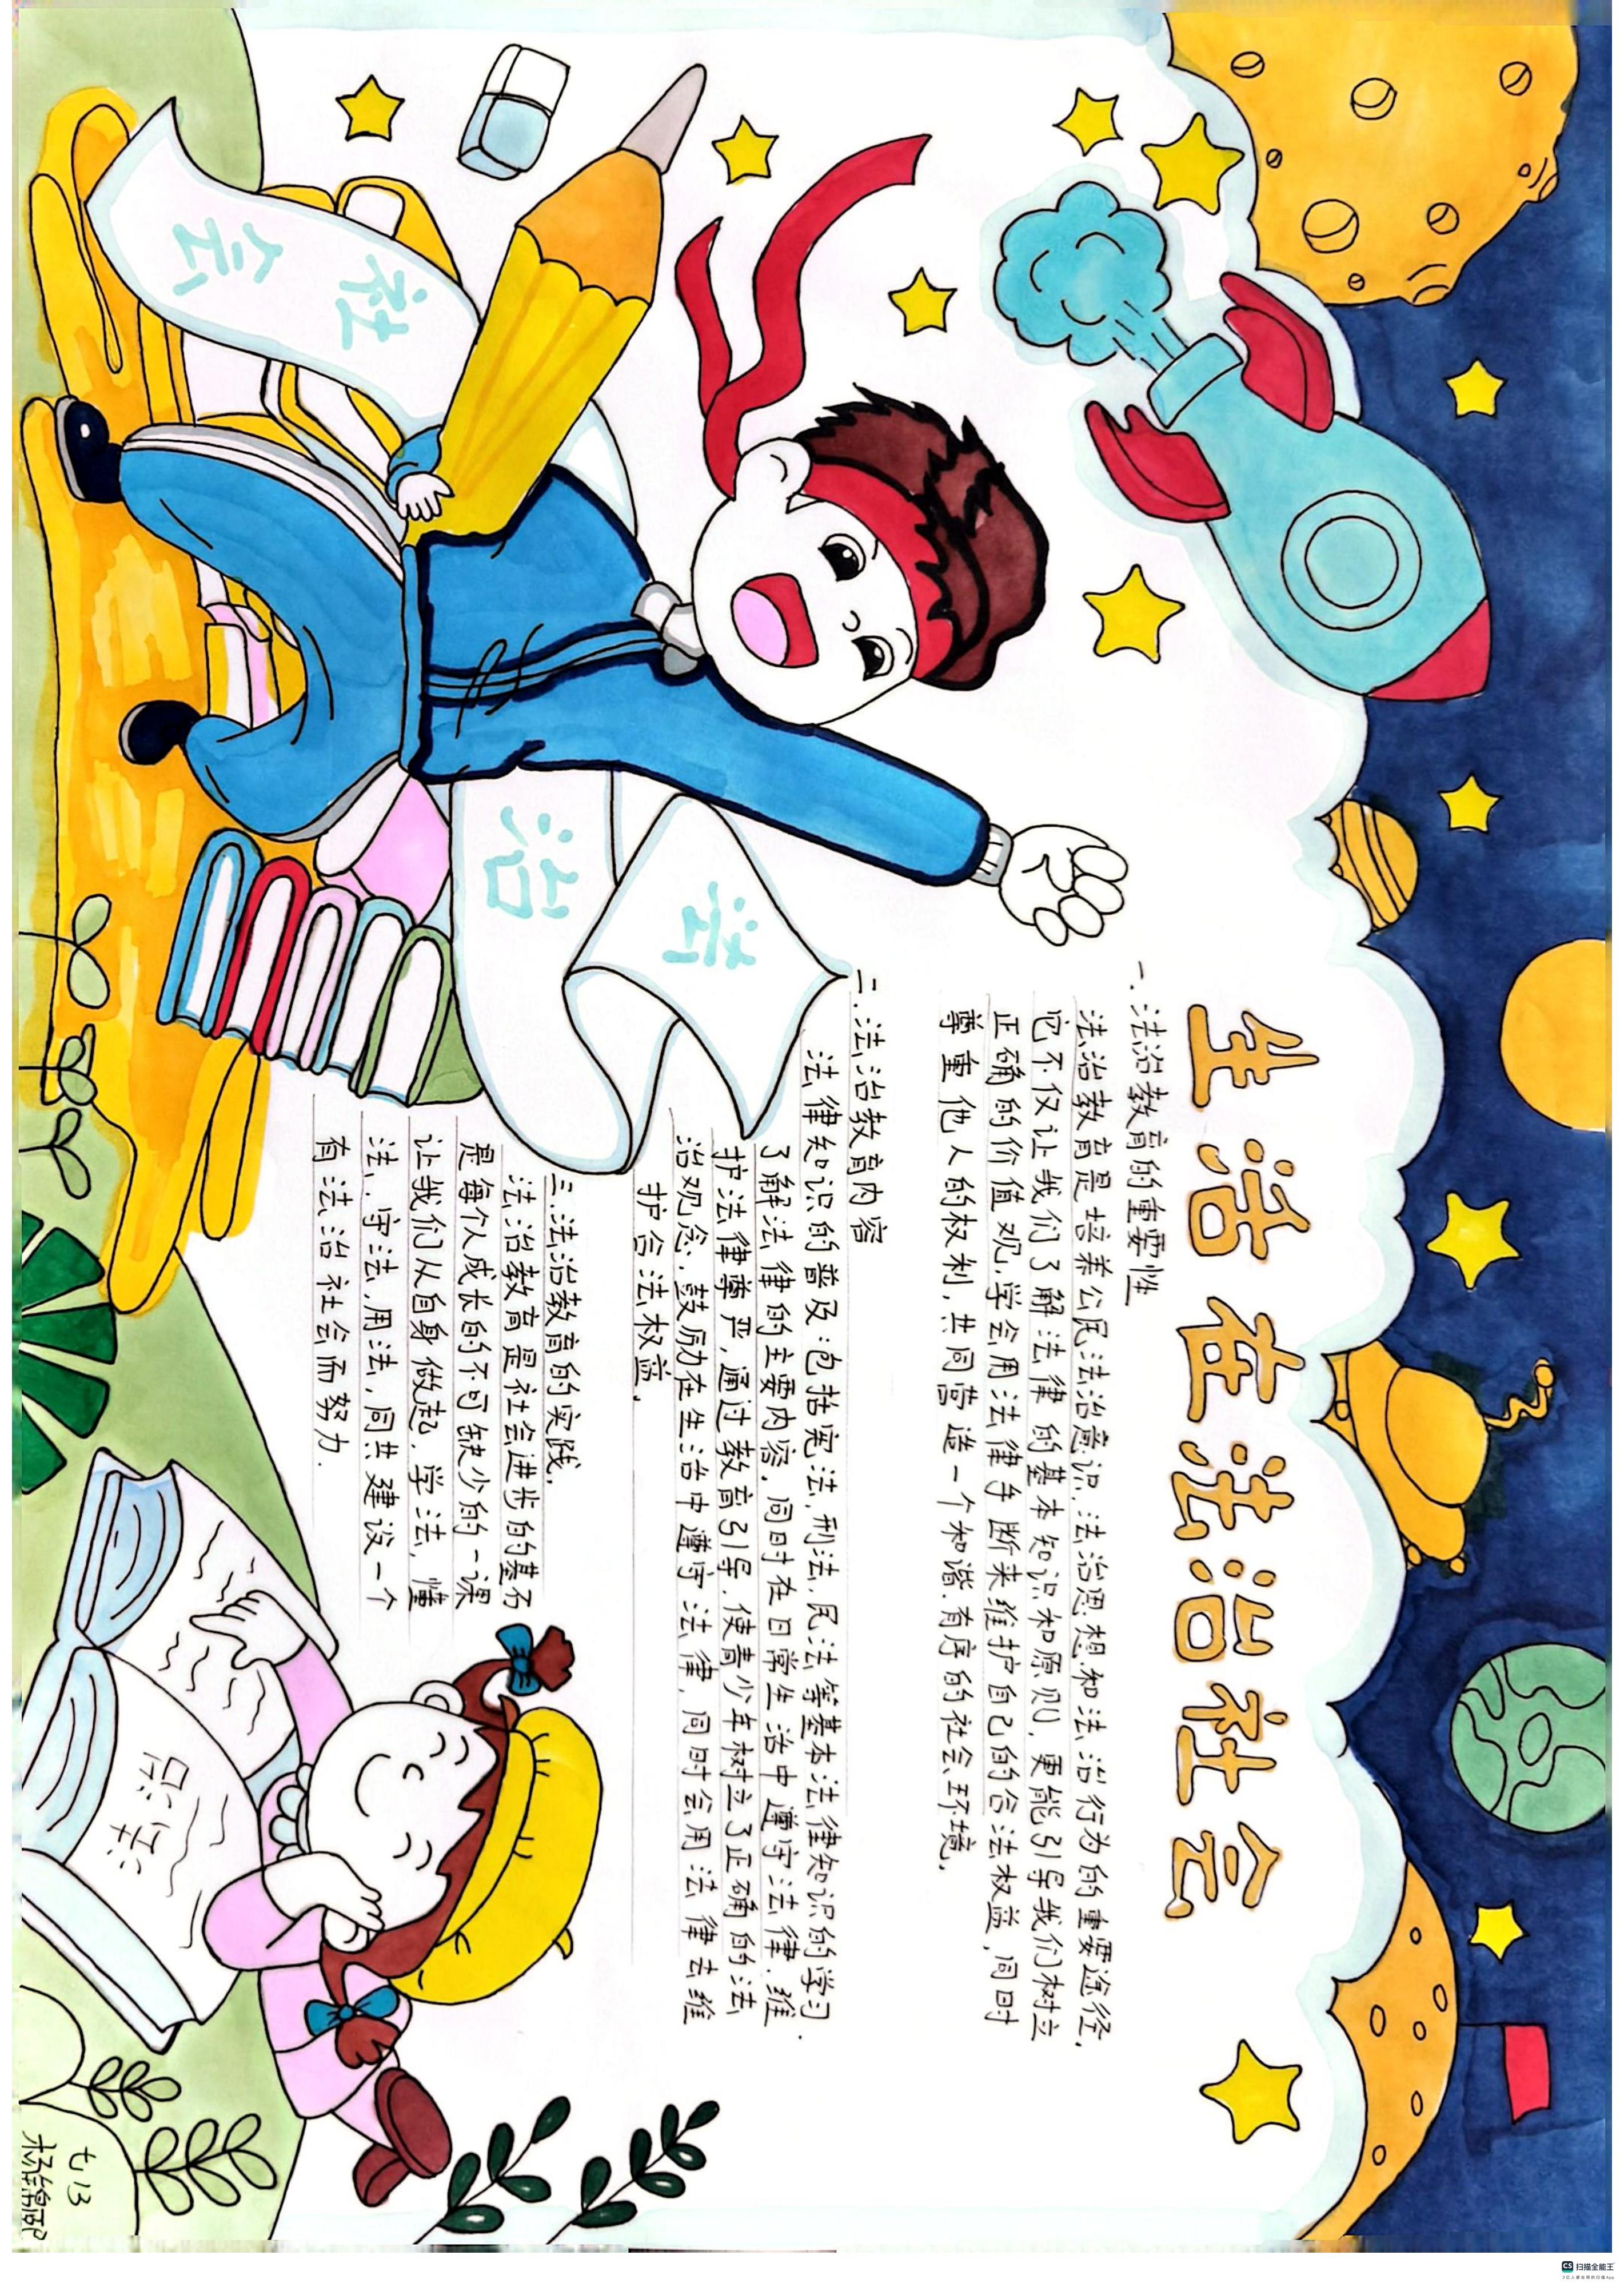 生活在法治社会
一.法治教育的重要性
法治教育是培养公民法治意识,法治思想和法治行为的重要途径,
它不仅让我们了解法律的基本知识和原则,更能引导我们树立
正确的价值观,学会用法律手断来维护自己的合法权益,同时
尊重他人的权利,共同营造一个和谐.有序的社会环境.
二.法治教育内容
法律知识的普及:包括宪法,刑法,民法等基本法律知识的学习.
了解法律的主要内容,同时在日常生活中遵守法律.维
护法律尊严,通过教育引导.使青少年树立了正确的法
治观念.鼓励在生活中遵守法律,同时会用法律去维
护合法权益.
三.法治教育的实践,
法治教育是社会进步的基石
是每个人成长的不可缺少的一课
让我们从自身做起.学法,懂
法.守法,用法,同共建设一个
有法治社会而努力.
法
治
社
会
民法
七13
CS 扫描全能王